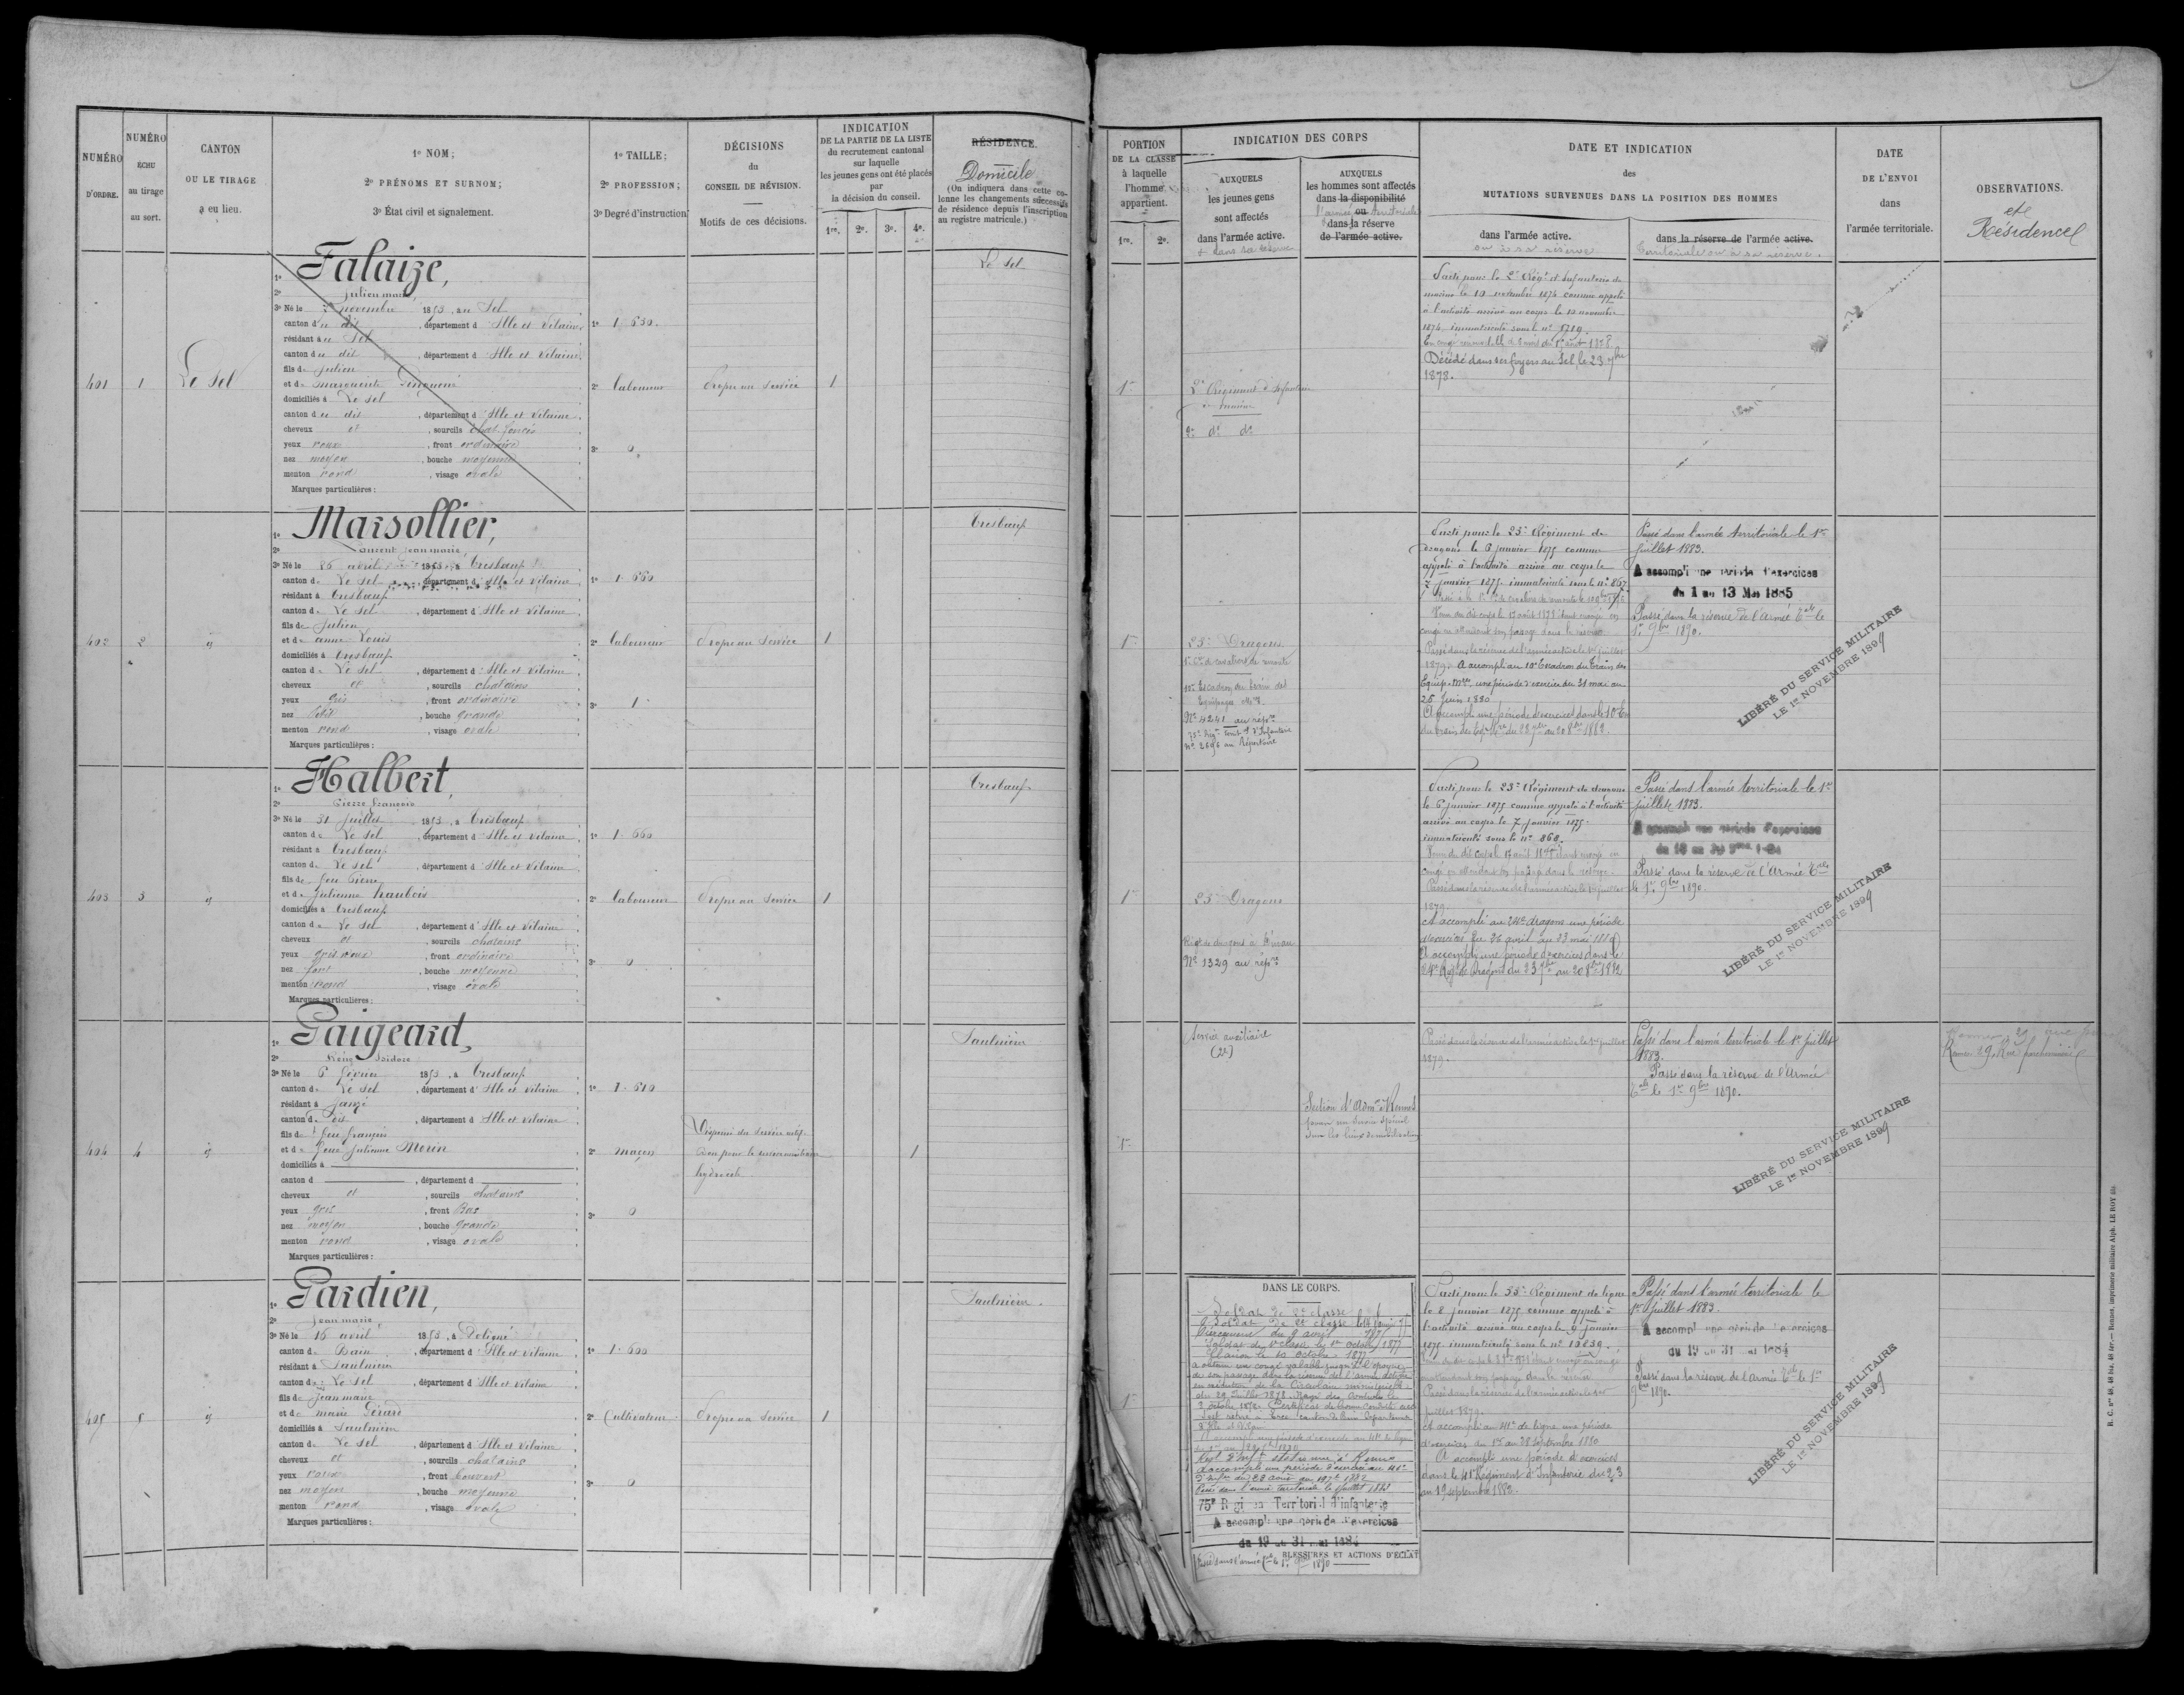 NUMÉRO
D'ORDRE.
NUMÉRO
ÉCHU
au tirage
au sort.
CANTON
OU LE TIRAGE
a eu lieu.
1º NOM;
2º PRÉNOMS ET SURNOM;
3º État civil et signalement.
1º TAILLE;
2º PROFESSION;
3º Degré d'instruction
DÉCISIONS
du
CONSEIL DE RÉVISION.
Motifs de ces décisions.
INDICATION
DE LA PARTIE DE LA LISTE
du recrutement cantonal
sur laquelle
les jeunes gens ont été placés
par
la décision du conseil.
1re. 2e. 3e. 4e.
RÉSIDENCE.
Domicile
(On indiquera dans cette co-
lonne les changements successifs
de résidence depuis l'inscription
au registre matricule.)
401
1
Le Sel
1º Falaize,
2º Julien marie
3º Né le 2 novembre 1853, au Sel
canton du dit, département d'Ille et Vilaine
résidant au Sel
canton du dit, département d'Ille et Vilaine
fils de Julien
et de marguerite
domiciliés à Le Sel
canton du dit, département d'Ille et Vilaine
cheveux et, sourcils chat. foncés
yeux roux, front ordinaire
nez moyen, bouche moyenne
menton rond, visage ovale
Marques particulières:
1º 1. 630.
2º laboureur
3º 0
Propre au Service
1
Le Sel
402
2
id
1º Marsollier,
2º Laurent Jean marie
3º Né le 26 avril 1853, à Tresbœuf
canton de Le Sel, département d'Ille et Vilaine
résidant à Tresbœuf
canton de Le Sel, département d'Ille et Vilaine
fils de Julien
et de anne Louis
domiciliés à Tresbœuf
canton de Le Sel, département d'Ille et Vilaine
cheveux et, sourcils chatains
yeux gris, front ordinaire
nez petit, bouche grande
menton rond, visage ovale
Marques particulières:
1º 1. 660
2º laboureur
3º 1
Propre au Service
1
Tresbœuf
403
3
id
1º Halbert,
2º Pierre françois
3º Né le 31 juillet 1853, à Tresbœuf
canton de Le Sel, département d'Ille et Vilaine
résidant à Tresbœuf
canton de Le Sel, département d'Ille et Vilaine
fils de feu Pierre
et de Julienne haubois
domiciliés à Tresbœuf
canton de Le Sel, département d'Ille et Vilaine
cheveux et, sourcils chatains
yeux gris roux, front ordinaire
nez fort, bouche moyenne
menton rond, visage ovale
Marques particulières:
1º 1. 660
2º laboureur
3º 0
Propre au Service
1
Tresbœuf
404
4
id
1º Gaigeard,
2º René Isidore
3º Né le 6 février 1853, à Tresbœuf
canton de Le Sel, département d'Ille et Vilaine
résidant à Janzé
canton d dit, département d'Ille et Vilaine
fils de feu françois
et de feue Julienne Morin
domiciliés à
canton d , département d
cheveux et, sourcils chatains
yeux gris, front Bas
nez moyen, bouche grande
menton rond, visage ovale
Marques particulières:
1º 1. 610
2º maçon
3º 0
Dispensé du Service actif.
Bon pour le service auxiliaire
hydrocele
1
Saulnière
405
5
id
1º Gardien,
2º Jean marie
3º Né le 16 avril 1853, à Poligné
canton de Bain, département d'Ille et Vilaine
résidant à Saulnière
canton de Le Sel, département d'Ille et Vilaine
fils de Jean marie
et de marie Gérard
domiciliés à Saulnière
canton de Le Sel, département d'Ille et Vilaine
cheveux et, sourcils chatains
yeux roux, front couvert
nez moyen, bouche moyenne
menton rond, visage ovale
Marques particulières:
1º 1. 600
2º Cultivateur
3º 0
Propre au Service
1
Saulnière.
PORTION
DE LA CLASSE
à laquelle
l'homme
appartient.
1re. 2e.
INDICATION DES CORPS
AUXQUELS
les jeunes gens
sont affectés
dans l'armée active.
et dans sa réserve
AUXQUELS
les hommes sont affectés
dans la disponibilité
l'armée ou territoriale
dans la réserve
de l'armée active.
DATE ET INDICATION
des
MUTATIONS SURVENUES DANS LA POSITION DES HOMMES
dans l'armée active.
ou à sa réserve
dans la réserve de l'armée active.
Territoriale ou à sa réserve.
DATE
DE L'ENVOI
dans
l'armée territoriale.
OBSERVATIONS.
et
Résidence
1re
2e Régiment d'Infanterie
de marine
2e do do
Parti pour le 2e Régt d'Infanterie de
marine le 10 novembre 1874 comme appelé
à l'activité arrivé au corps le 12 novembre
1874, immatriculé sous le no 5719.
Décédé dans ses foyers au Sel, le 23 7bre
1878.
1re
23e Dragons
10e Escadron du Train des
Equipages Mres
No 4241 au répre
75e Régt territ. d'Infanterie
No 2696 au Répertoire
Parti pour le 23e Régiment de
dragons le 6 janvier 1875 comme
appelé à l'activité arrivé au corps le
7 janvier 1875 immatriculé sous le no 867
congé en attendant son passage dans la réserve
Passé dans la réserve de l'armée active le 1er juillet
1879. A accompli au 10e Escadron du Train des
Equip. Mres une période d'exercice du 31 mai au
26 Juin 1880
A accompli une période d'exercices dans le 10e Em
du train des Eq. Mres du 23 7bre au 20 8bre 1882.
Passé dans l'armée territoriale le 1er
juillet 1883.
A accompli une période d'exercices
du 1 au 13 Mai 1885
Passé dans la réserve de l'Armée Tale le
1er 9bre 1890.
LIBÉRÉ DU SERVICE MILITAIRE
LE 1er NOVEMBRE 1899
1re
23e Dragons
Régt de dragons à Dinan
No 1329 au répre
Parti pour le 23e Régiment de dragons
le 6 janvier 1875 comme appelé à l'activité
arrivé au corps le 7 janvier 1875.
immatriculé sous le no 868.
congé en attendant son passage dans la réserve.
Passé dans la réserve de l'armée active le 1er juillet
1879.
A accompli au 24e dragons une période
d'exercices du 26 avril au 23 mai 1880
A accompli une période d'exercices dans le
24e Régt de Dragons du 23 7bre au 20 8bre 1882
Passé dans l'armée territoriale le 1er
juillet 1883.
A accompli une période d'exercices
Passé dans la réserve de l'Armée Tale
le 1er 9bre 1890.
LIBÉRÉ DU SERVICE MILITAIRE
LE 1er NOVEMBRE 1899
1re
Service auxiliaire
(2e)
Section d'Admon Rennes
pour un service spécial
dans les lieux de mobilisation
Passé dans la réserve de l'armée active le 1er juillet
1879.
Passé dans l'armée territoriale le 1er juillet
1883.
Passé dans la réserve de l'Armée
Tale le 1er 9bre 1890.
LIBÉRÉ DU SERVICE MILITAIRE
LE 1er NOVEMBRE 1899
1re
DANS LE CORPS.
Soldat de 2e classe
Soldat de 1re classe le 1er octobre 1877
Clairon le 10 octobre 1877
A obtenu un congé valable jusqu'à l'époque
de son passage dans la réserve de l'armée active
A accompli une période d'exercice au 41e
d'Infie du 23 août au 19 7bre 1882
Passé dans l'armée territoriale le 1 juillet 1883
75e Régiment Territorial d'infanterie
A accompli une période d'exercices
du 19 au 31 mai 1884
BLESSURES ET ACTIONS D'ÉCLAT
Parti pour le 33e Régiment de ligne
le 8 janvier 1875 comme appelé à
l'activité arrivé au corps le 9 janvier
1875. immatriculé sous le no 13839.
Passé dans la réserve de l'armée active le 1er
juillet 1879.
A accompli au 41e de ligne une période
d'exercices du 1er au 28 septembre 1880
A accompli une période d'exercices
dans le 41e Régiment d'Infanterie du 23
au 19 septembre 1882.
Passé dans l'armée territoriale le
1er juillet 1883.
A accompli une période d'exercices
du 19 au 31 mai 1884
Passé dans la réserve de l'Armée Tale le 1er
9bre 1890.
LIBÉRÉ DU SERVICE MILITAIRE
LE 1er NOVEMBRE 1899
Rennes, imprimerie militaire Alph. LE ROY fils.